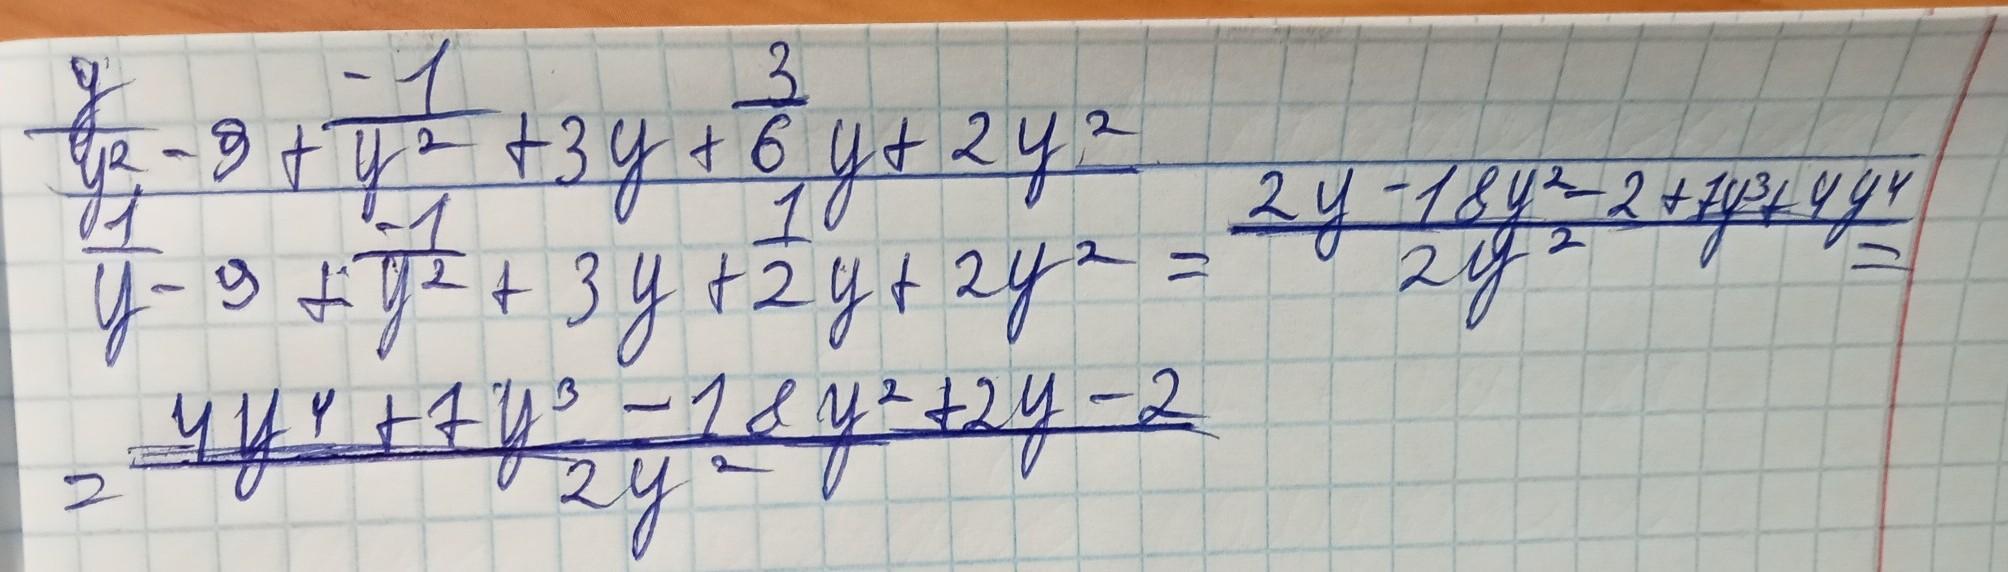 y/y² - 9 + -1/y² + 3y + 3/6 y + 2y²
1/y - 9 + -1/y² + 3y + 1/2 y + 2y² = (2y - 18y² - 2 + 7y³ + 4y⁴)/2y² =
= (4y⁴ + 7y³ - 18y² + 2y - 2)/2y²